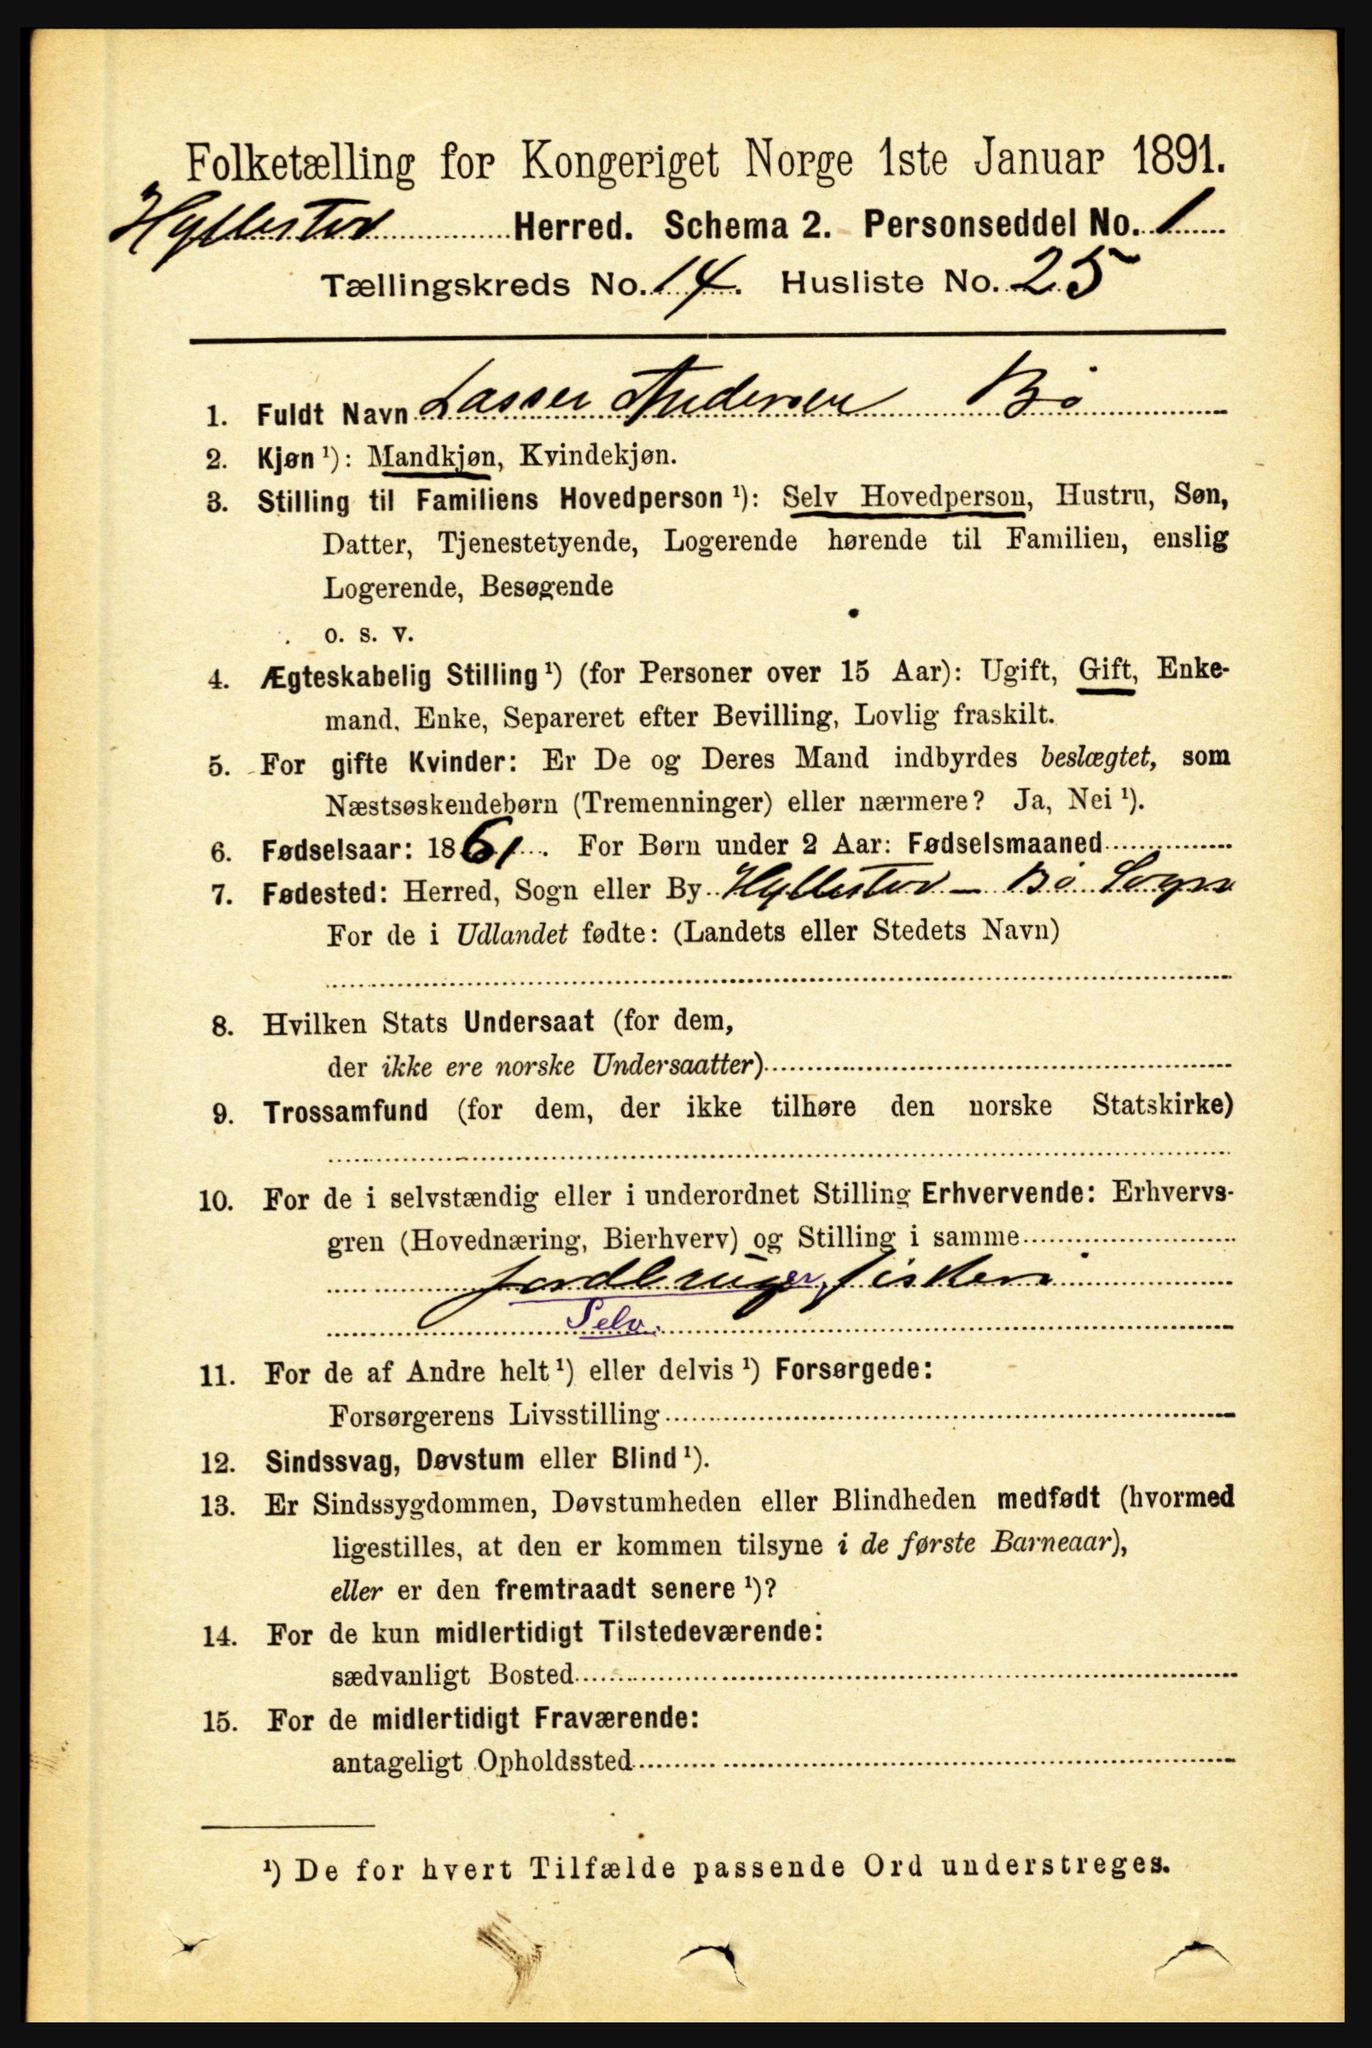 Folketælling for Kongeriget Norge 1ste Januar 1891.
Hyllestad Herred. Schema 2. Personseddel No. 1
Tællingskreds No. 14. Husliste No. 25
1. Fuldt Navn Lasse Andersen Bø
2. Kjøn ¹): Mandkjøn, Kvindekjøn.
3. Stilling til Familiens Hovedperson ¹): Selv Hovedperson, Hustru, Søn,
Datter, Tjenestetyende, Logerende hørende til Familien, enslig
Logerende, Besøgende
o. s. v.
4. Ægteskabelig Stilling ¹) (for Personer over 15 Aar): Ugift, Gift, Enke-
mand, Enke, Separeret efter Bevilling, Lovlig fraskilt.
5. For gifte Kvinder: Er De og Deres Mand indbyrdes beslægtet, som
Næstsøskendebørn (Tremenninger) eller nærmere? Ja, Nei ¹).
6. Fødselsaar: 1861. For Børn under 2 Aar: Fødselsmaaned
7. Fødested: Herred, Sogn eller By Hyllestad - Bø Sogn
For de i Udlandet fødte: (Landets eller Stedets Navn)
8. Hvilken Stats Undersaat (for dem,
der ikke ere norske Undersaatter)
9. Trossamfund (for dem, der ikke tilhøre den norske Statskirke)
10. For de i selvstændig eller i underordnet Stilling Erhvervende: Erhvervs-
gren (Hovednæring, Bierhverv) og Stilling i samme
jordbruger, fiskeri
Selv.
11. For de af Andre helt ¹) eller delvis ¹) Forsørgede:
Forsørgerens Livsstilling
12. Sindssvag, Døvstum eller Blind ¹).
13. Er Sindssygdommen, Døvstumheden eller Blindheden medfødt (hvormed
ligestilles, at den er kommen tilsyne i de første Barneaar),
eller er den fremtraadt senere ¹)?
14. For de kun midlertidigt Tilstedeværende:
sædvanligt Bosted
15. For de midlertidigt Fraværende:
antageligt Opholdssted
¹) De for hvert Tilfælde passende Ord understreges.